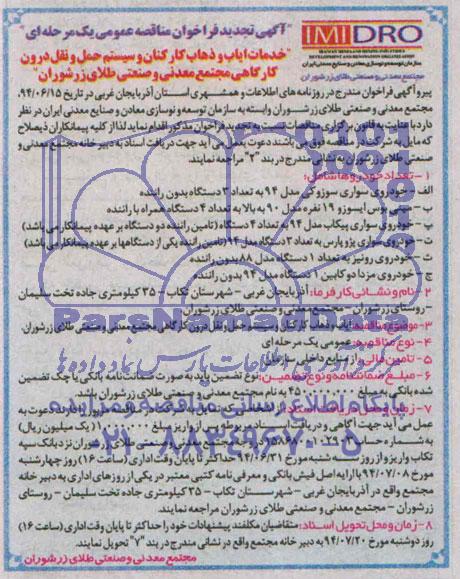 IMIDRO
IRANIAN MINES AND MINING INDUSTRIES
DEVELOPMENT AND RENOVATION ORGANIZATION
سازمان توسعه و نوسازی معادن و صنایع معدنی ایران
مجتمع معدنی و صنعتی طلای زرشوران
"آگهی تجدید فراخوان مناقصه عمومی یک مرحله ای"
"خدمات ایاب و ذهاب کارکنان و سیستم حمل و نقل درون
کارگاهی مجتمع معدنی و صنعتی طلای زرشوران"
پیرو آگهی فراخوان مندرج در روزنامه های اطلاعات و همشهری استان آذربایجان غربی در تاریخ ۹۴/۰۶/۱۵،
مجتمع معدنی و صنعتی طلای زرشوران وابسته به سازمان توسعه و نوسازی معادن و صنایع معدنی ایران در نظر
دارد با عنایت به قانون برگزاری مناقصات نسبت به تجدید فراخوان مذکور اقدام نماید لذا از کلیه پیمانکاران ذیصلاح
که مایل به شرکت در مناقصه فوق می باشند دعوت بعمل می آید جهت دریافت اسناد به دبیرخانه مجتمع معدنی و
صنعتی طلای زرشوران به نشانی مندرج در بند "۲" مراجعه نمایند.
۱- تعداد خودروها شامل:
الف - خودروی سواری سوزوکی مدل ۹۴ به تعداد ۳ دستگاه بدون راننده
ب - مینی بوس ایسوزو ۱۹ نفره مدل ۹۰ به بالا به تعداد ۴ دستگاه همراه با راننده
پ - خودروی سواری پیکاپ مدل ۹۴ به تعداد ۴ دستگاه (تامین راننده دو دستگاه بر عهده پیمانکار می باشد)
ت - خودروی سواری پژو پارس به تعداد ۳ دستگاه مدل ۹۴ (تامین راننده یکی از دستگاهها بر عهده پیمانکار می باشد)
ث - خودروی رونیز به تعداد ۱ دستگاه مدل ۸۸ بدون راننده
ج - خودروی مزدا دو کابین ۱ دستگاه مدل ۹۴ بدون راننده
۲- نام و نشانی کارفرما: آذربایجان غربی - شهرستان تکاب - ۳۵ کیلومتری جاده تخت سلیمان
- روستای زرشوران - مجتمع معدنی و صنعتی طلای زرشوران
۳- موضوع مناقصه: ایاب و ذهاب کارکنان و سیستم حمل و نقل درون کارگاهی مجتمع معدنی و صنعتی طلای زرشوران.
۴- نوع مناقصه: عمومی یک مرحله ای
۵- تامین مالی: از منابع داخلی سازمان
۶- مبلغ ضمانتنامه و نوع تضمین: نوع تضمین باید به صورت ضمانت نامه بانکی یا چک تضمین
شده بانکی به مبلغ به نام مجتمع معدنی و صنعتی طلای زرشوران باشد
۷- زمان و محل دریافت اسناد: از دعوت به
عمل می آید جهت آگاهی و دریافت اسناد مربوطه پس از واریز مبلغ ۱,۰۰۰,۰۰۰ (یک میلیون ریال)
به شماره حساب مجتمع معدنی و صنعتی طلای زرشوران نزد بانک سپه
تکاب واریز و از روز سه شنبه مورخ ۹۴/۰۶/۳۱ حداکثر تا پایان وقت اداری (ساعت ۱۶) روز چهارشنبه
مورخ ۹۴/۰۷/۰۸ با ارایه اصل فیش بانکی و معرفی نامه کتبی معتبر در یکی از روزهای اداری به دبیرخانه
مجتمع واقع در آذربایجان غربی - شهرستان تکاب - ۳۵ کیلومتری جاده تخت سلیمان - روستای
زرشوران - مجتمع معدنی و صنعتی طلای زرشوران مراجعه نمایند.
۸- زمان و محل تحویل اسناد: متقاضیان مکلفند پیشنهادات خود را حداکثر تا پایان وقت اداری (ساعت ۱۶)
روز دوشنبه مورخ ۹۴/۰۷/۲۰ به دبیرخانه مجتمع واقع در نشانی مندرج در بند "۷" تحویل نمایند.
مجتمع معدنی و صنعتی طلای زرشوران
ParsNamadData
مرکز فرآوری اطلاعات پارس نماد داده ها
پایگاه اطلاع رسانی مناقصه و مزایده
۰۲۱-۸۸۳۴۹۶۷۰-۵